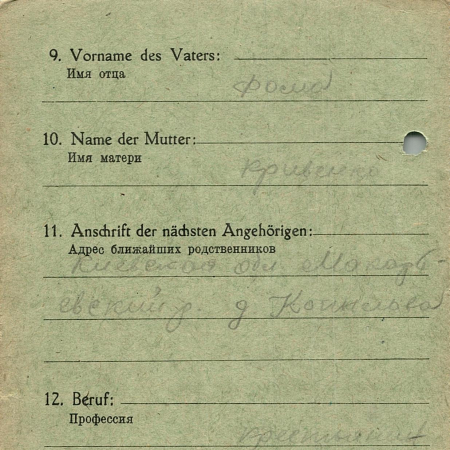 9. Vorname des Vaters:
Имя отца
Фома
10. Name der Mutter:
Имя матери
Кривенко
11. Anschrift der nächsten Angehörigen:
Адрес ближайших родственников
Киевская обл Макарь-
евский р. д.
12. Beruf:
Профессия
крестьянин